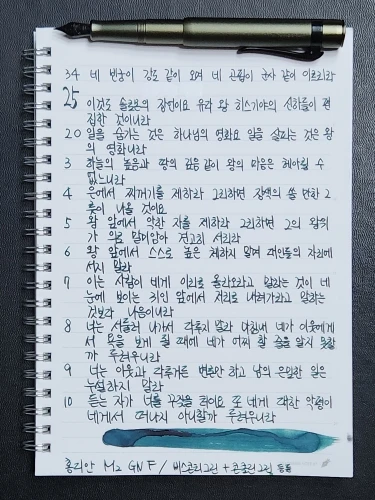 34 네 빈궁이 강도 같이 오며 네 곤핍이 군사 같이 이르리라
25 이것도 솔로몬의 잠언이요 유다 왕 히스기야의 신하들이 편
집한 것이니라
20 일을 숨기는 것은 하나님의 영화요 일을 살피는 것은 왕
의 영화니라
3 하늘의 높음과 땅의 깊음 같이 왕의 마음은 헤아릴 수
없느니라
4 은에서 찌꺼기를 제하라 그리하면 장색의 쓸 만한 그
릇이 나올 것이요
5 왕 앞에서 악한 자를 제하라 그리하면 그의 왕위
가 의로 말미암아 견고히 서리라
6 왕 앞에서 스스로 높은 체하지 말며 대인들의 자리에
서지 말라
7 이는 사람이 네게 이리로 올라오라고 말하는 것이 네
눈에 보이는 귀인 앞에서 저리로 내려가라고 말하는
것보다 나음이니라
8 너는 서둘러 나가서 다투지 말라 마침내 네가 이웃에게
서 욕을 보게 될 때에 네가 어찌 할 줄을 알지 못할
까 두려우니라
9 너는 이웃과 다투거든 변론만 하고 남의 은밀한 일은
누설하지 말라
10 듣는 자가 너를 꾸짖을 터이요 또 네게 대한 악평이
네게서 떠나지 아니할까 두려우니라
홍디안 M2 GN F / 비스콘티그린 +